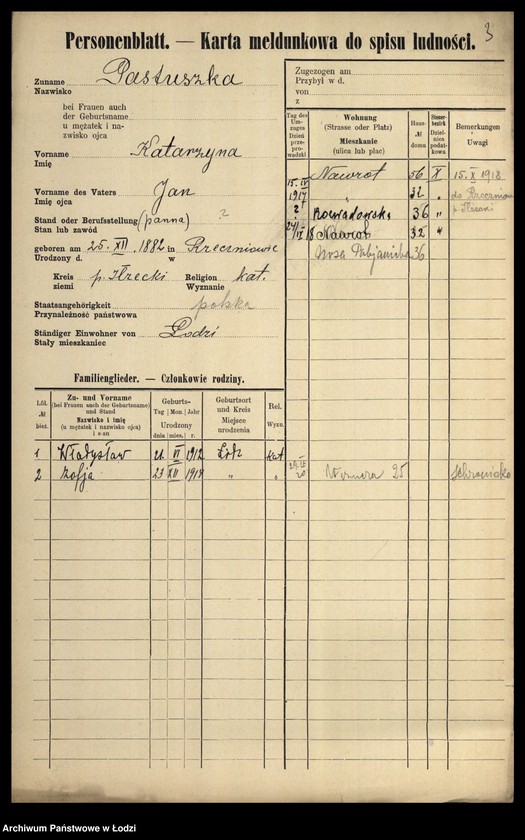 3
Personenblatt. — Karta meldunkowa do spisu ludności.
Zuname Pastuszka
Nazwisko
bei Frauen auch
der Geburtsname
u mężatek i na-
zwisko ojca
Vorname Katarzyna
Imię
Vorname des Vaters Jan
Imię ojca
Stand oder Berufsstellung (panna) ?
Stan lub zawód
geboren am 25. XII. 1882 in Rzeczniowie
Urodzony d. w
Kreis p. Iłżecki Religion kat.
ziemi Wyznanie
Staatsangehörigkeit polska
Przynależność państwowa
Ständiger Einwohner von Łodzi
Stały mieszkaniec
Zugezogen am
Przybył w d.
von
z
Tag des Um-zuges Dzień prze-prowadzki
Wohnung (Strasse oder Platz) Mieszkanie (ulica lub plac)
Haus- № domu
Steuer-bezirk Dziel-nica podat-kowa
Bemerkungen Uwagi
15. IV 1917 Nawrot 36 X 15. X 1918
" 32 " do Rzeczniowa
? Rokicińska 36 " p. Iłżecki
24/IX 18 Nawrot 32 "
Pabjanicka 36
Familienglieder. — Członkowie rodziny.
Lfd. № bież.
Zu- und Vorname (bei Frauen auch der Geburtsname) und Stand Nazwisko i imię (u mężatek i nazwisko ojca) i stan
Geburts- Tag Mon. Jahr Urodzony dnia mies. r.
Geburtsort und Kreis Miejsce urodzenia
Rel. Wyzn.
1 Władysław 21 VI 1912 Łódź kat
2 Zofja 23 XII 1917 " "
25
Archiwum Państwowe w Łodzi